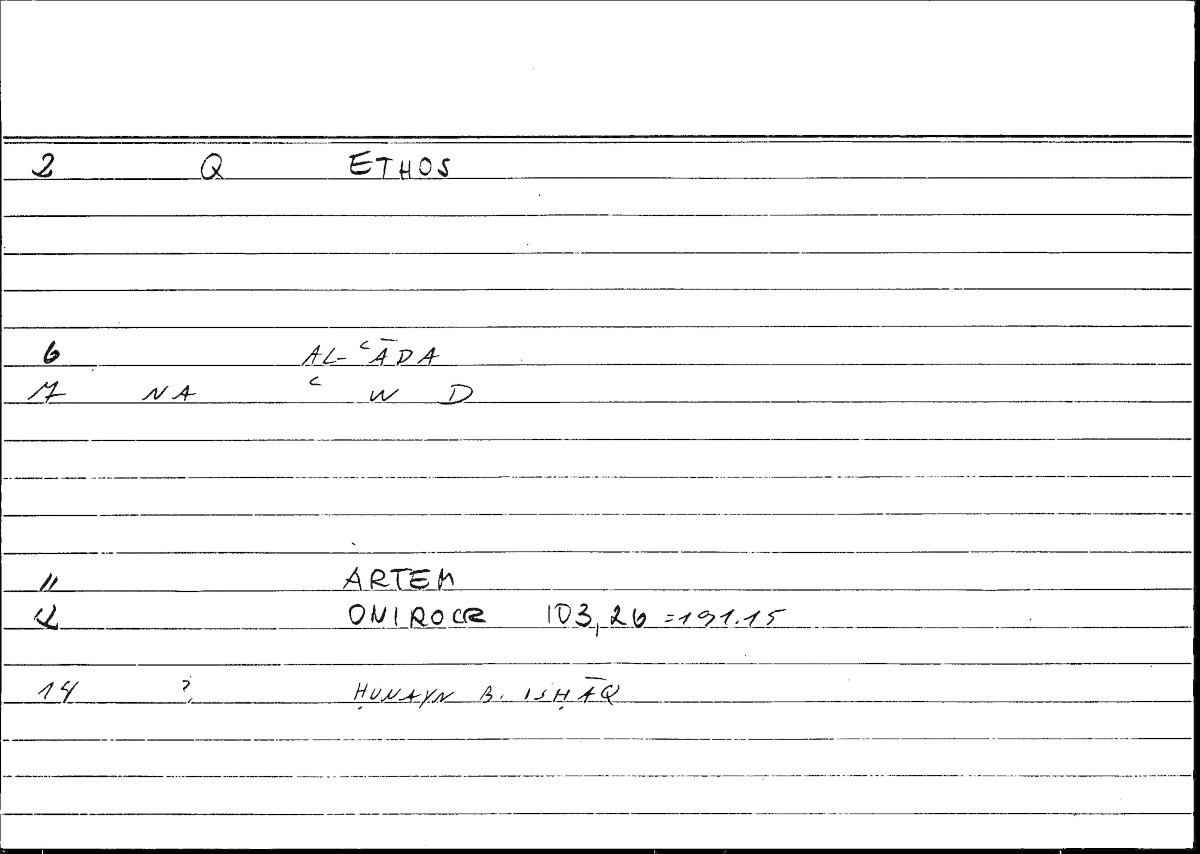 2 Q ETHOS
6 AL-ʿĀDA
7 NA ʿ W D
11 ARTEM
12 ONIROCR 103,26 =191.15
14 ? ḤUNAYN B. ISḤĀQ